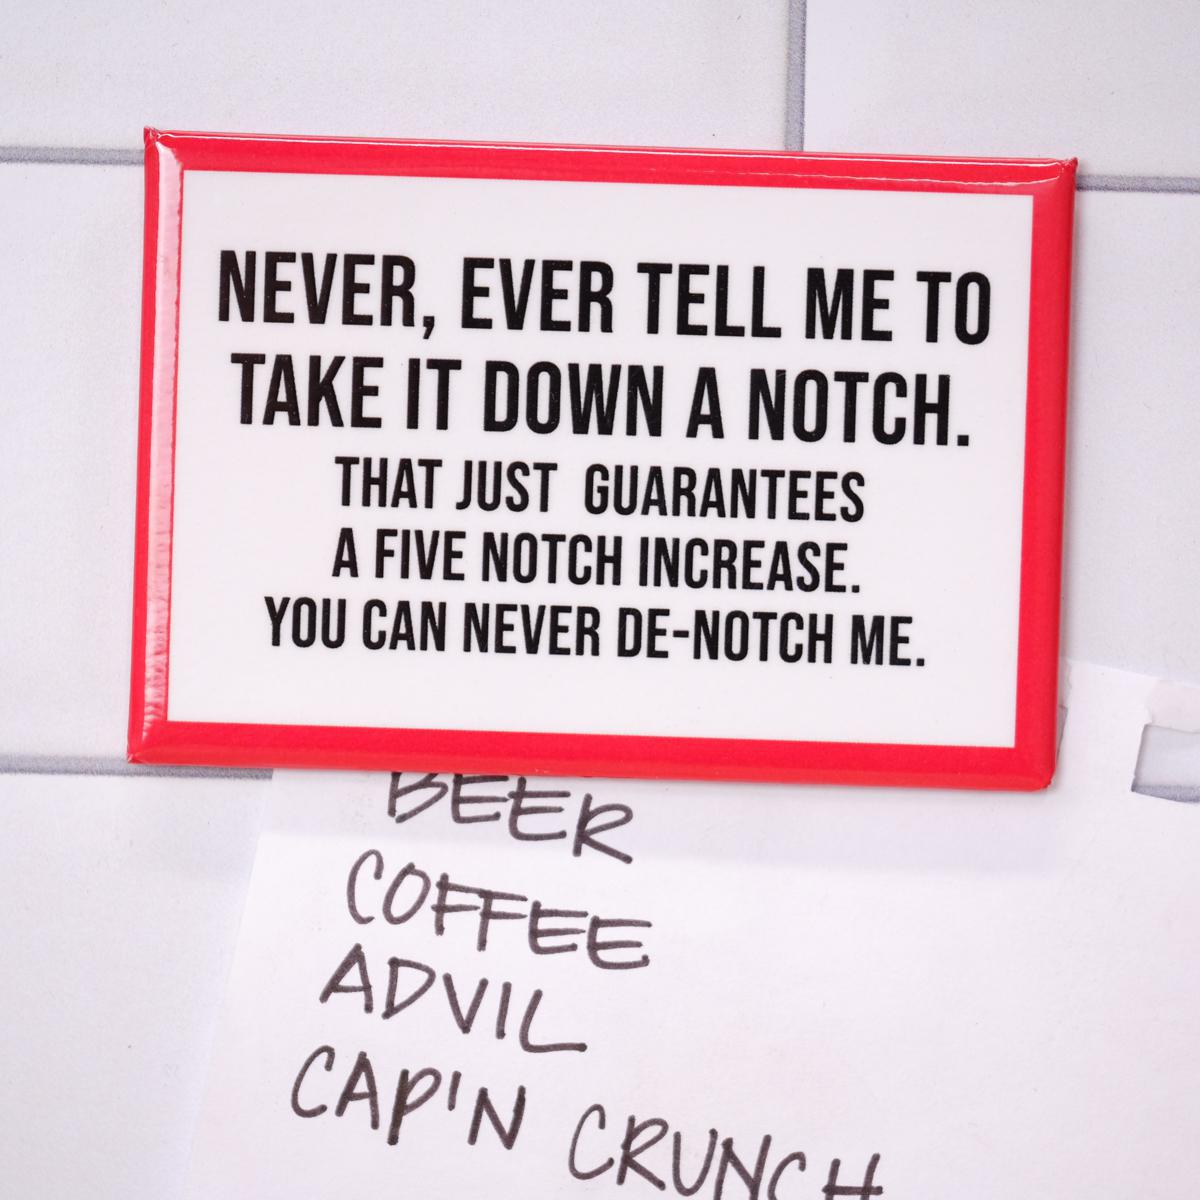 NEVER, EVER TELL ME TO
TAKE IT DOWN A NOTCH.
THAT JUST GUARANTEES
A FIVE NOTCH INCREASE.
YOU CAN NEVER DE-NOTCH ME.
BEER
COFFEE
ADVIL
CAP'N CRUNCH